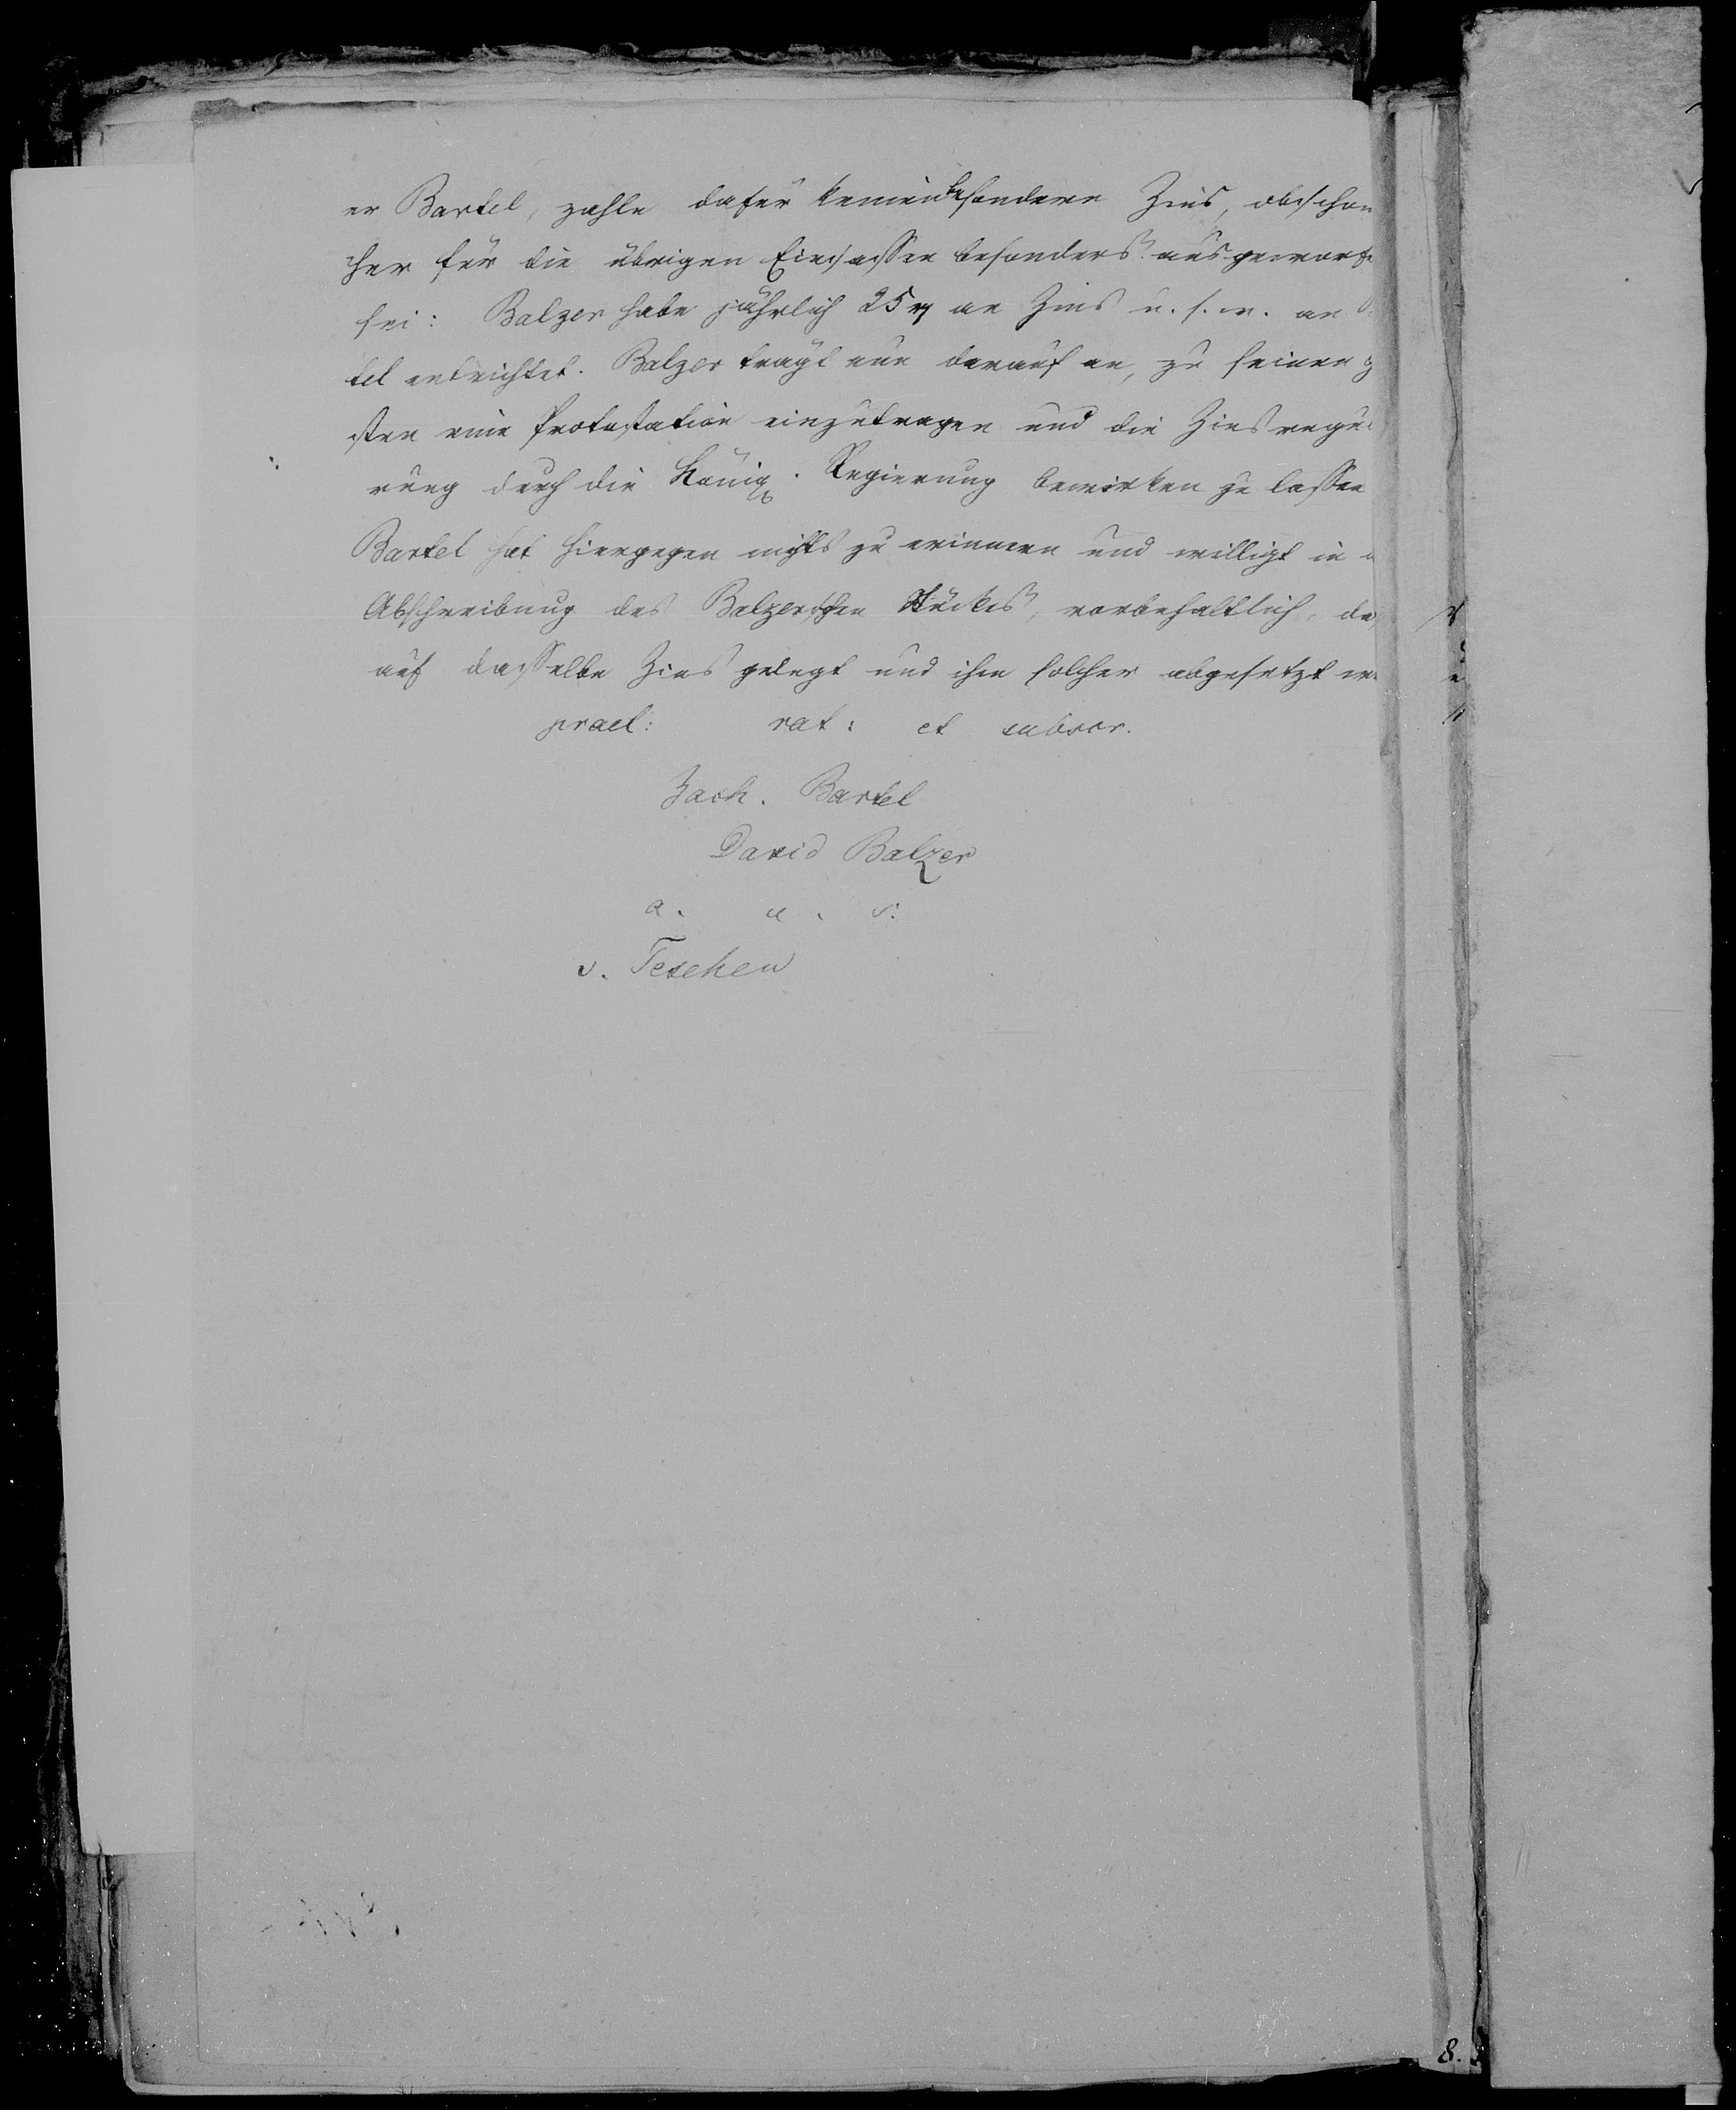 er Bartel, zahle dafür keinen besonderen Zins, obschon
cher für die übrigen Einsassen besonders ausgeworfe
sei: Balzer habe jährlich 25 an Zins u. s. w. an
tel entrichtet. Balzer trägt nun darauf an, zu seinen g
sten eine Protestation einzutragen und die Zinsregul
rung durch die Königl. Regierung bewirken zu lassen
Bartel hat hiergegen nichts zu erinnern und willigt in
Abschreibung des Balzerschen Stückes, vorbehaltlich, da
auf dasselbe Zins gelegt und ihm solcher abgesetzt we
prael: rat: et subscr.
Zach. Bartel
David Balzer
a. u. s.
v. Teschen
8.